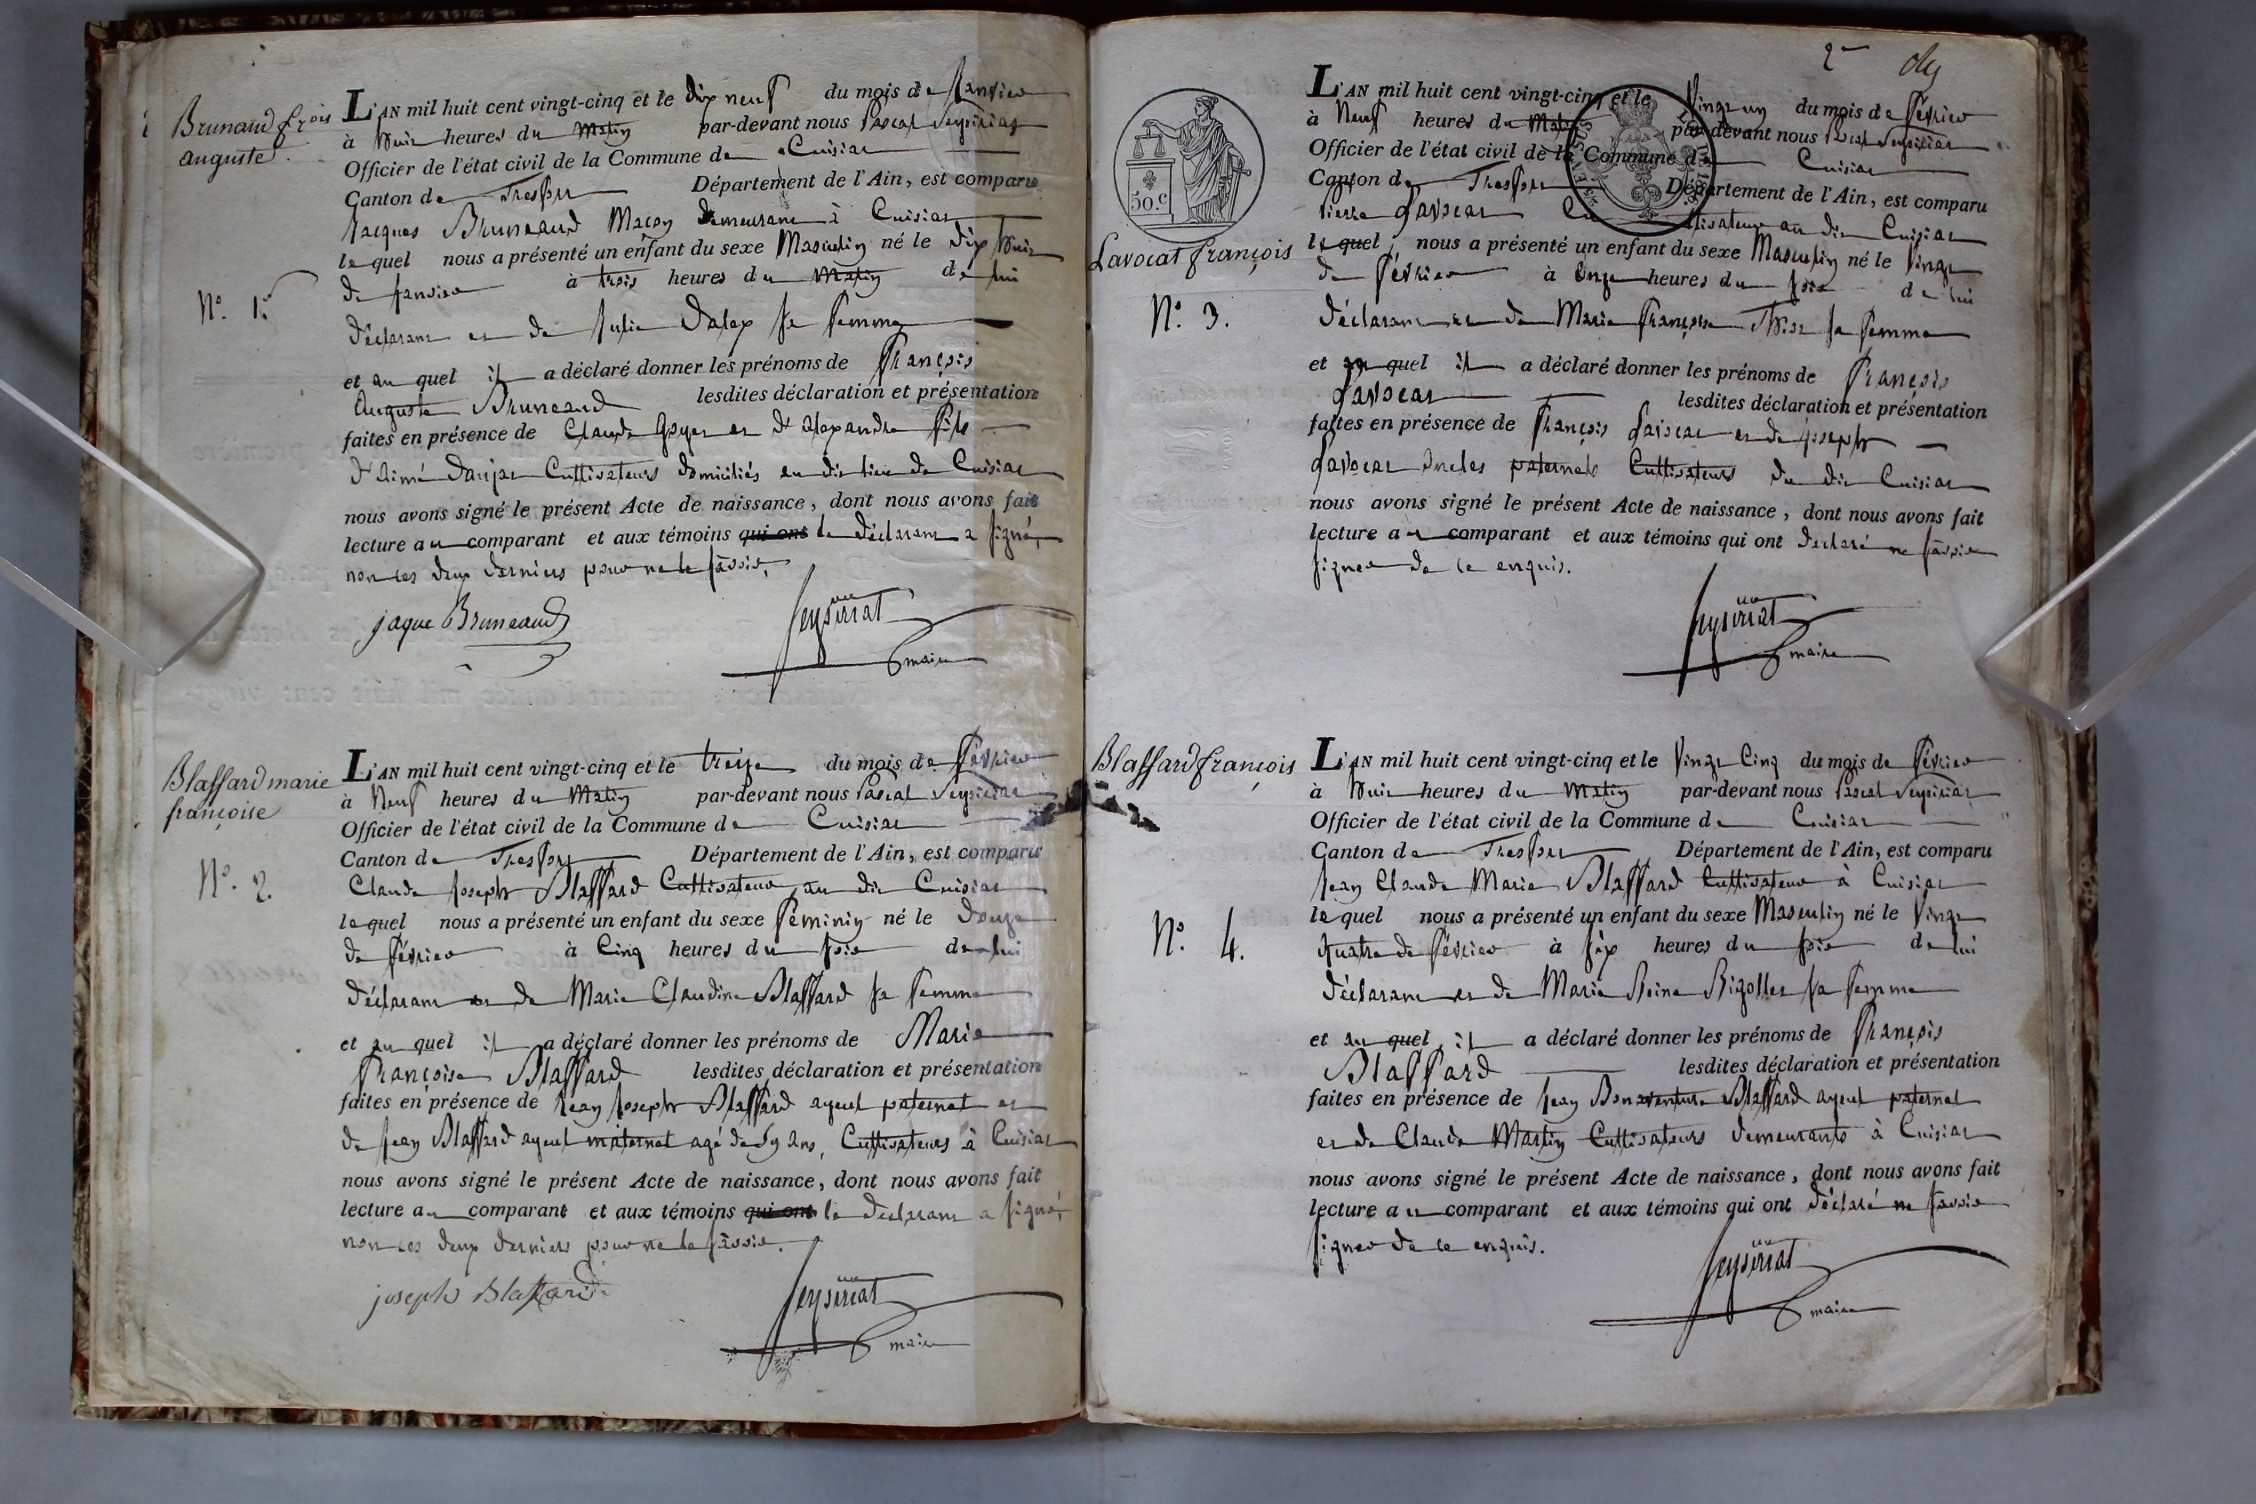 Brunaud frois
auguste
N.º 1.er
L'AN mil huit cent vingt-cinq et le dix neuf du mois de Janvier
à huit heures du Matin par-devant nous Pascal Seyssiriat
Officier de l'état civil de la Commune de Cuisiat
Canton de Treffort Département de l'Ain, est comparu
Jacques Bruneaud Maçon demeurant à Cuisiat
lequel nous a présenté un enfant du sexe Masculin né le dix huit
de Janvier à trois heures du Matin de lui
déclarant et de Julie Dalex sa femme
et au quel il a déclaré donner les prénoms de François
Auguste Bruneaud lesdites déclaration et présentation
faites en présence de Claude Goyet et d'alexandre fils
d'aimé Daujat Cultivateurs domiciliés au dit lieu de Cuisiat
nous avons signé le présent Acte de naissance, dont nous avons fait
lecture au comparant et aux témoins qui ont le déclarant a signé,
non les deux derniers pour ne le savoir.
jaque Bruneaud
Seyssiriat
maire
Blaffard marie
françoise
N.º 2.
L'AN mil huit cent vingt-cinq et le treize du mois de février
à Neuf heures du Matin par-devant nous Pascal Seyssiriat
Officier de l'état civil de la Commune de Cuisiat
Canton de Treffort Département de l'Ain, est comparu
Claude Joseph Blaffard Cultivateur au dit Cuisiat
lequel nous a présenté un enfant du sexe féminin né le douze
de février à Cinq heures du soir de lui
déclarant et de Marie Claudine Blaffard sa femme
et au quel il a déclaré donner les prénoms de Marie
françoise Blaffard lesdites déclaration et présentation
faites en présence de Jean Joseph Blaffard ayeul paternel et
de Jean Blaffard ayeul maternel agé de ans, Cultivateurs à Cuisiat
nous avons signé le présent Acte de naissance, dont nous avons fait
lecture au comparant et aux témoins qui ont le déclarant a signé,
non les deux derniers pour ne le savoir.
joseph Blaffard
Seyssiriat
maire
2
50.c
Lavocat françois
N.º 3.
L'AN mil huit cent vingt-cinq et le vingt un du mois de février
à Neuf heures du Matin par-devant nous Pascal Seyssiriat
Officier de l'état civil de la Commune de Cuisiat
Canton de Treffort Département de l'Ain, est comparu
Pierre Lavocat Cultivateur au dit Cuisiat
lequel nous a présenté un enfant du sexe Masculin né le vingt
de février à Onze heures du soir de lui
déclarant et de Marie françoise sa femme
et au quel il a déclaré donner les prénoms de François
Lavocat lesdites déclaration et présentation
faites en présence de François Lavocat et de Joseph
Lavocat oncles paternels Cultivateurs du dit Cuisiat
nous avons signé le présent Acte de naissance, dont nous avons fait
lecture au comparant et aux témoins qui ont déclaré ne savoir
signer de ce enquis.
Seyssiriat
maire
Blaffard françois
N.º 4.
L'AN mil huit cent vingt-cinq et le vingt Cinq du mois de février
à huit heures du Matin par-devant nous Pascal Seyssiriat
Officier de l'état civil de la Commune de Cuisiat
Canton de Treffort Département de l'Ain, est comparu
Jean Claude Marie Blaffard Cultivateur à Cuisiat
lequel nous a présenté un enfant du sexe Masculin né le vingt
quatre de février à six heures du soir de lui
déclarant et de Marie Reine Rigollet sa femme
et au quel il a déclaré donner les prénoms de François
Blaffard lesdites déclaration et présentation
faites en présence de Jean Bonaventure Blaffard ayeul paternel
et de Claude Martin Cultivateurs demeurants à Cuisiat
nous avons signé le présent Acte de naissance, dont nous avons fait
lecture au comparant et aux témoins qui ont déclaré ne savoir
signer de ce enquis.
Seyssiriat
maire